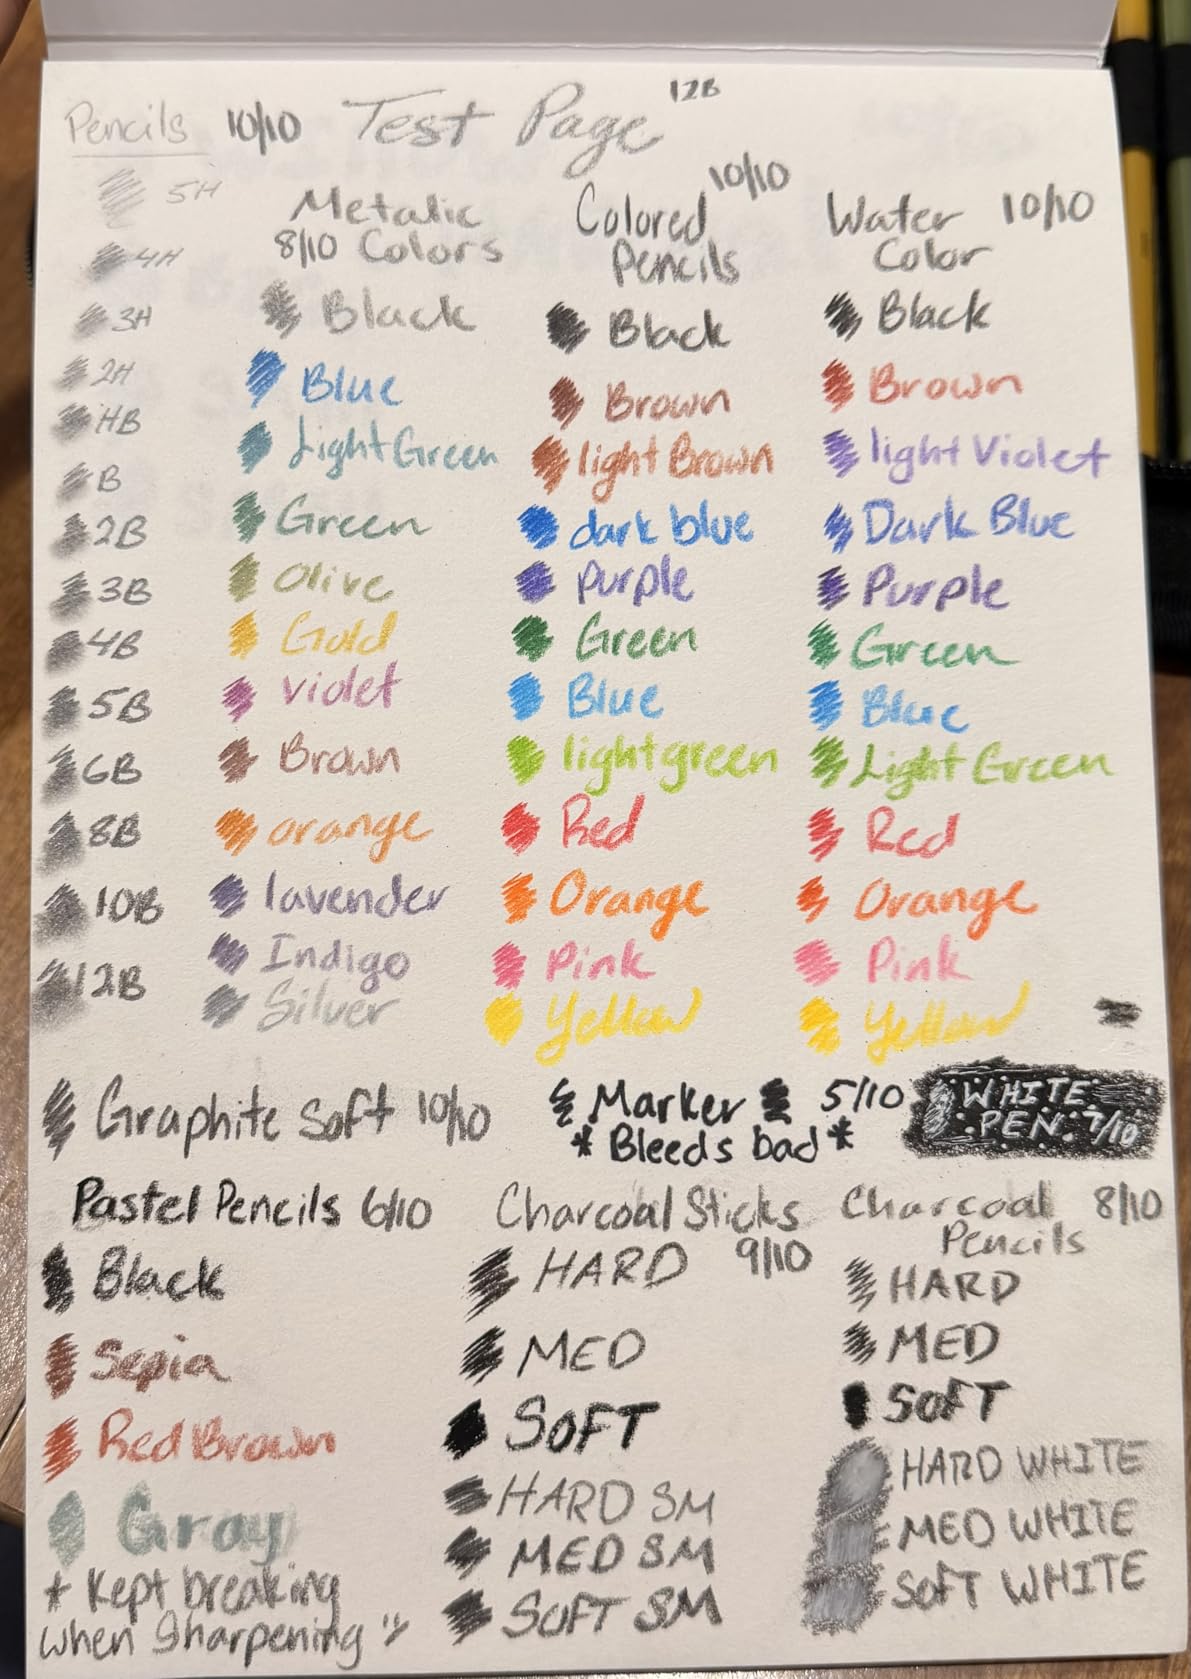 Test Page 12B
Pencils 10/10
5H
4H
3H
2H
HB
B
2B
3B
4B
5B
6B
8B
10B
12B
Metalic
8/10 Colors
Black
Blue
Light Green
Green
Olive
Gold
violet
Brown
orange
lavender
Indigo
Silver
Colored 10/10
Pencils
Black
Brown
light Brown
dark blue
Purple
Green
Blue
light green
Red
Orange
Pink
Yellow
Water 10/10
Color
Black
Brown
light Violet
Dark Blue
Purple
Green
Blue
Light Green
Red
Orange
Pink
Yellow
Graphite Soft 10/10
Marker 5/10
* Bleeds bad *
WHITE
PEN 7/10
Pastel Pencils 6/10
Black
Sepia
Red Brown
Gray
* Kept breaking
when sharpening
Charcoal Sticks
9/10
HARD
MED
SOFT
HARD SM
MED SM
SOFT SM
Charcoal 8/10
Pencils
HARD
MED
SOFT
HARD WHITE
MED WHITE
SOFT WHITE